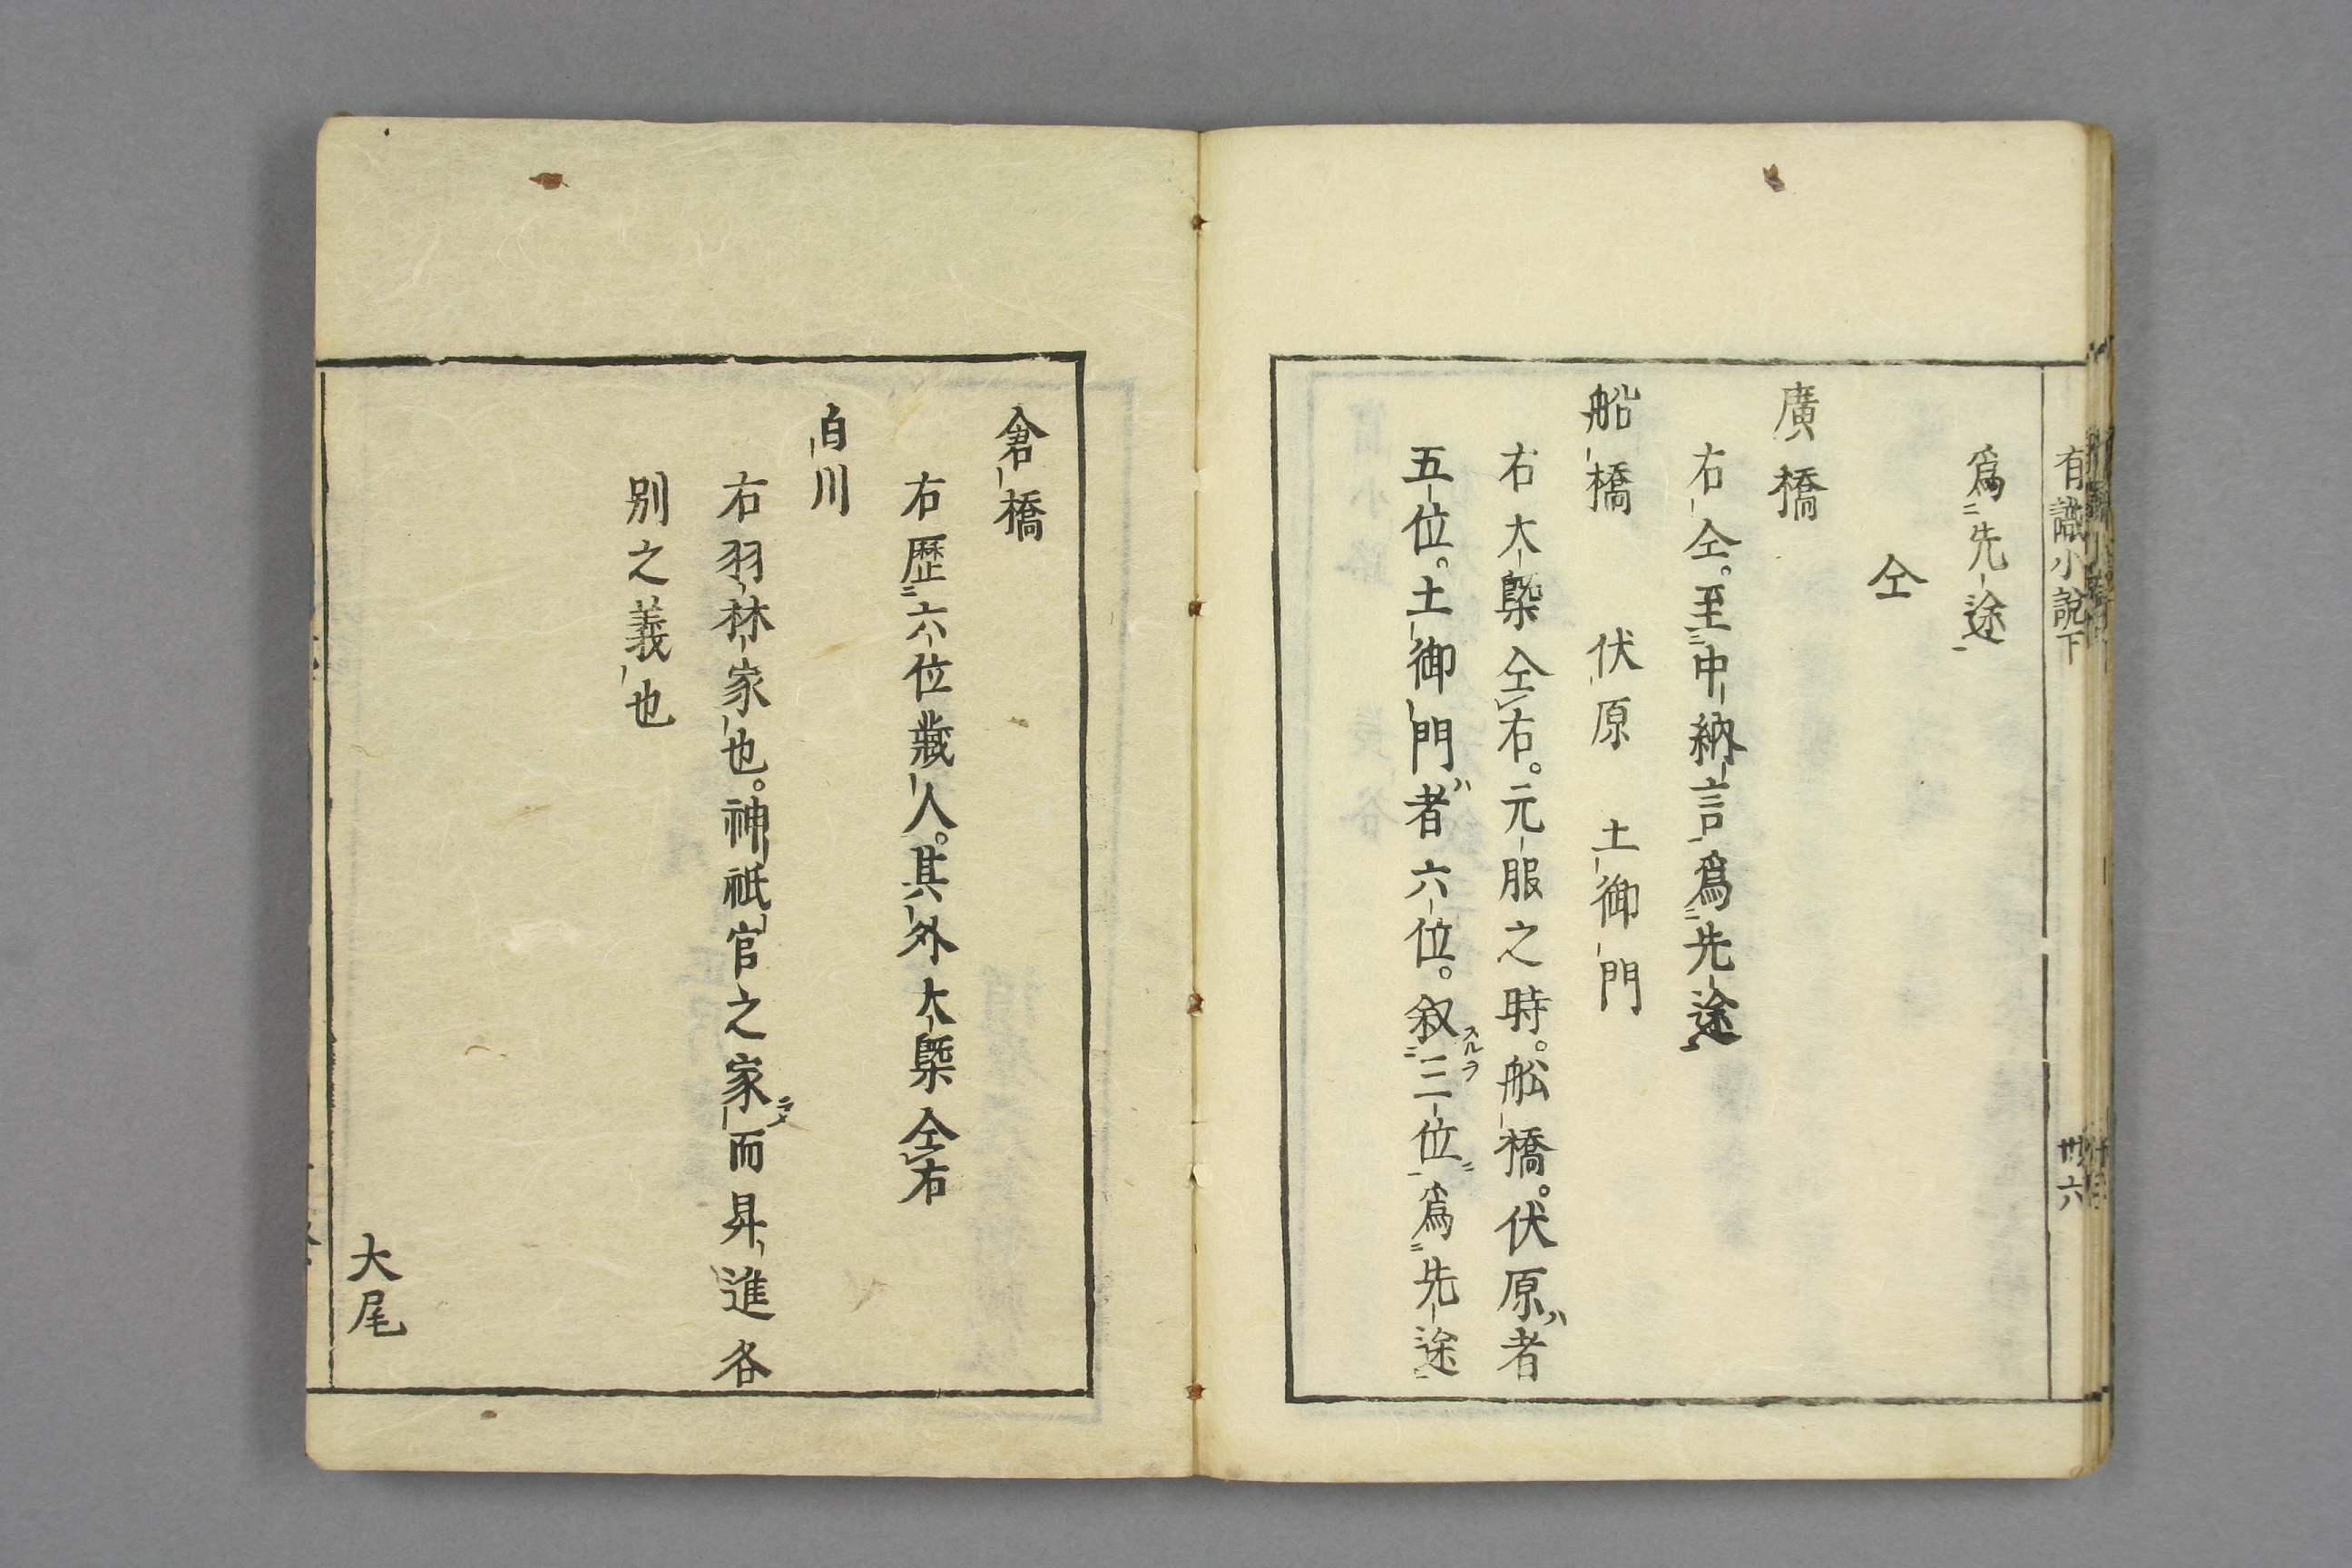 有識小説下
卅六
爲先途
仝
廣橋
右仝。至中納言爲先途
舩橋　伏原　土御門
右大槩仝右。元服之時。舩橋。伏原者
五位。土御門者六位。叙三位爲先途
倉橋
右歴六位藏人。其外大槩仝右
白川
右羽林家也。神祇官之家而昇進各
別之義也
大尾